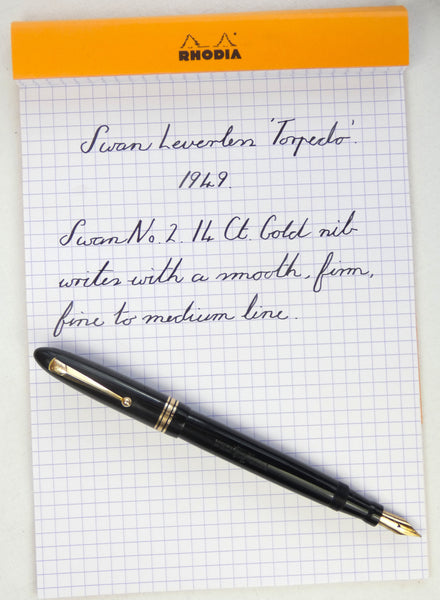 RHODIA
Swan Leverless 'Torpedo'.
1949.
Swan No. 2. 14 Ct. Gold nib
writes with a smooth, firm,
fine to medium line.